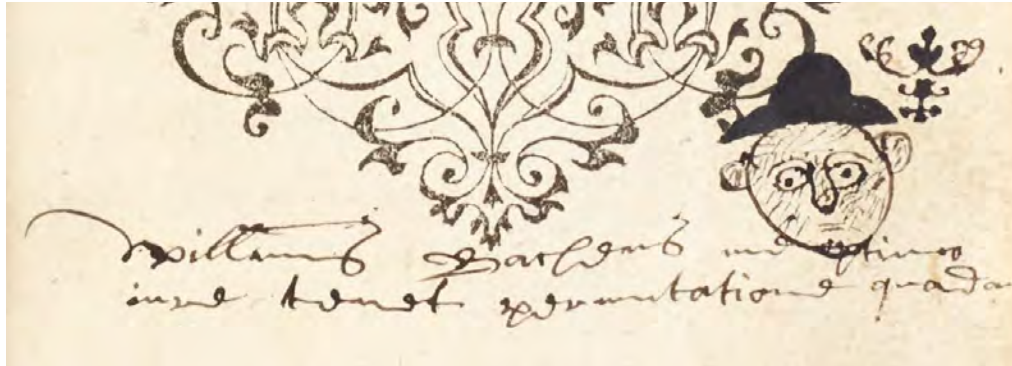 Willamus Bacherus me optimo
iure tenet permutatione quada